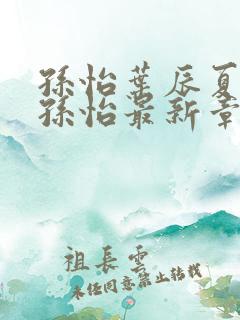 孫怡葉辰夏
孫怡最新章
祖長雲
未經同意禁止轉載